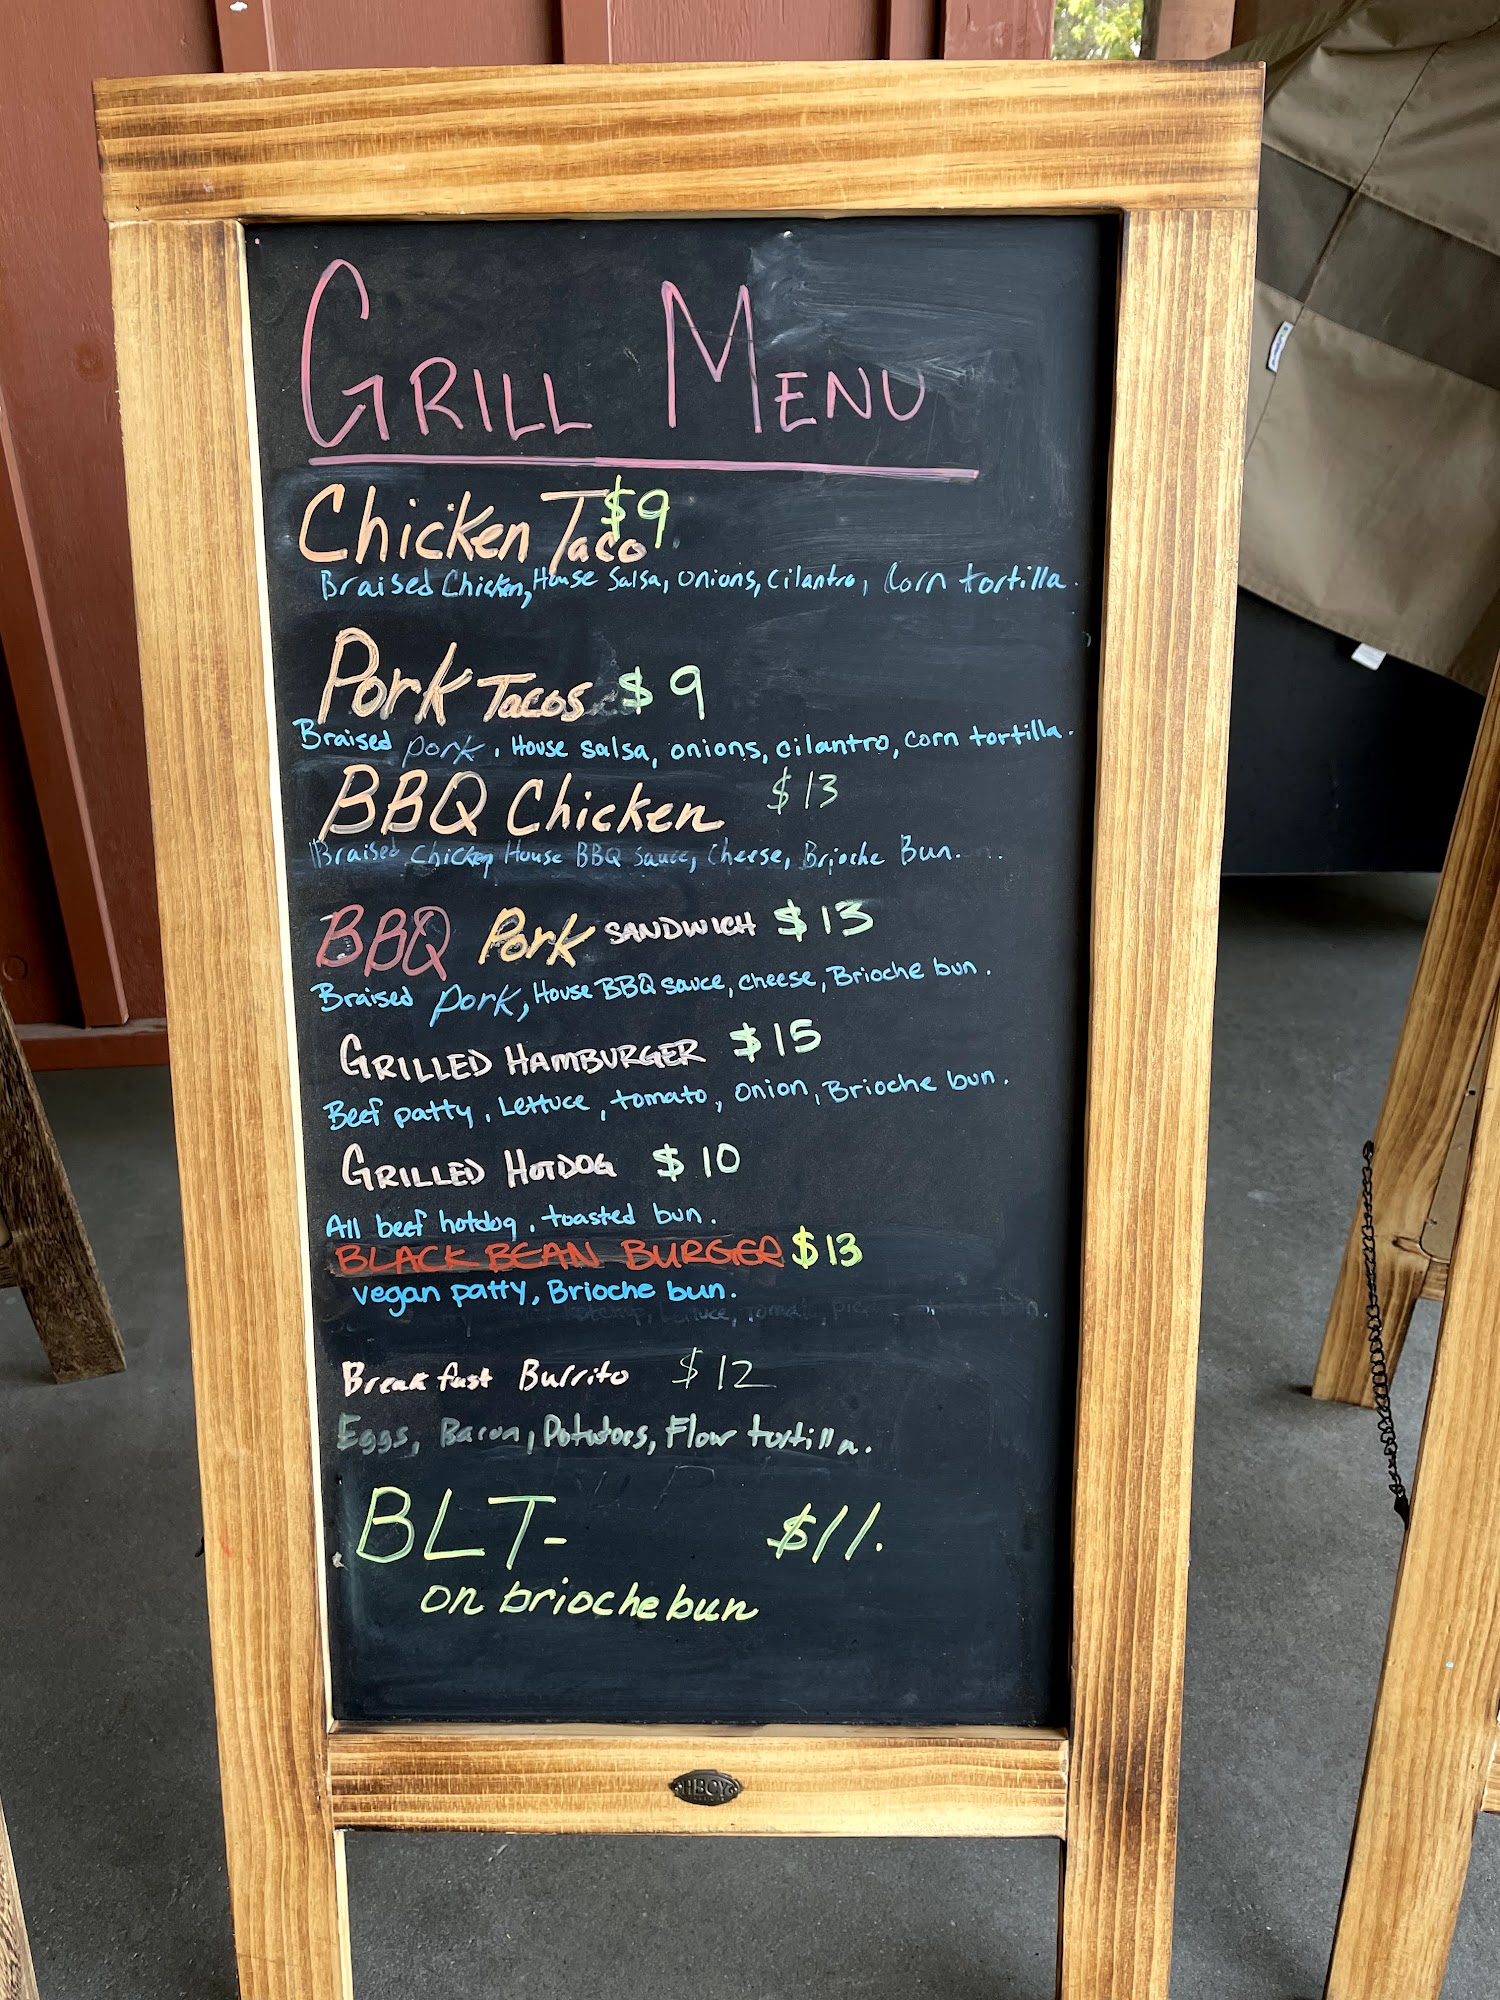 GRILL MENU
Chicken Taco $9
Braised Chicken, House Salsa, onions, cilantro, Corn tortilla.
Pork Tacos $9
Braised pork, House salsa, onions, cilantro, corn tortilla.
BBQ Chicken $13
Braised Chicken House BBQ sauce, cheese, Brioche Bun.
BBQ Pork SANDWICH $13
Braised pork, House BBQ sauce, cheese, Brioche bun.
GRILLED HAMBURGER $15
Beef patty, Lettuce, tomato, onion, Brioche bun.
GRILLED HOTDOG $10
All beef hotdog, toasted bun.
BLACK BEAN BURGER $13
vegan patty, Brioche bun.
Breakfast Burrito $12
Eggs, Bacon, Potatoes, Flour tortilla.
BLT- $11.
on brioche bun
HBCY